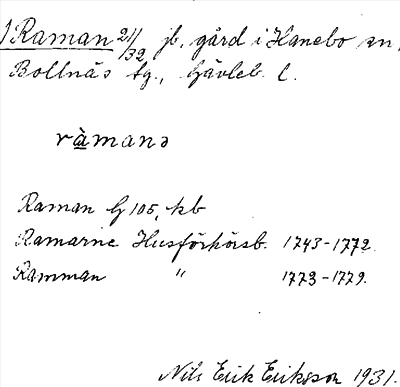 1) Raman 21/32 jb. gård i Hanebo sn,
Bollnäs tg., Gävleb. l.
ràmanə
Raman G 105, kb
Ramarne Husförhörsb. 1743-1772.
Ramman " 1773-1779.
Nils Erik Eriksson 1931.